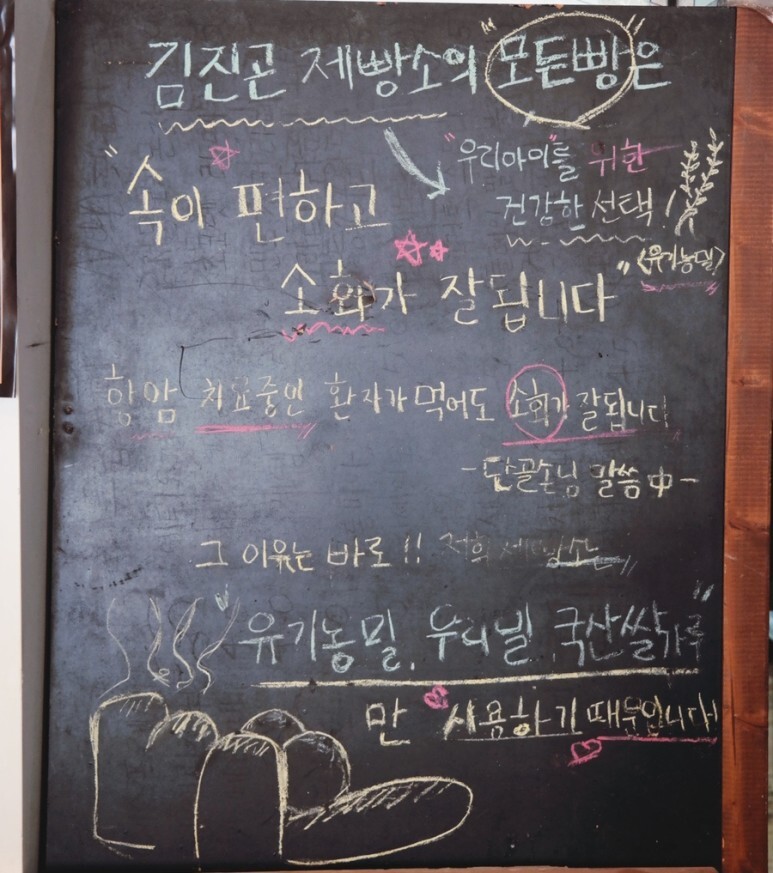 김진곤 제빵소의 "모든빵"은
"우리아이"를 위한
건강한 선택!
<유기농밀>
"속이 편하고
소화가 잘됩니다"
항암 치료중인 환자가 먹어도 소화가 잘됩니다
-단골손님 말씀中-
그 이유는 바로!! 저희 제빵소는
"유기농밀, 우리밀, 국산쌀가루"
만 사용하기 때문입니다!